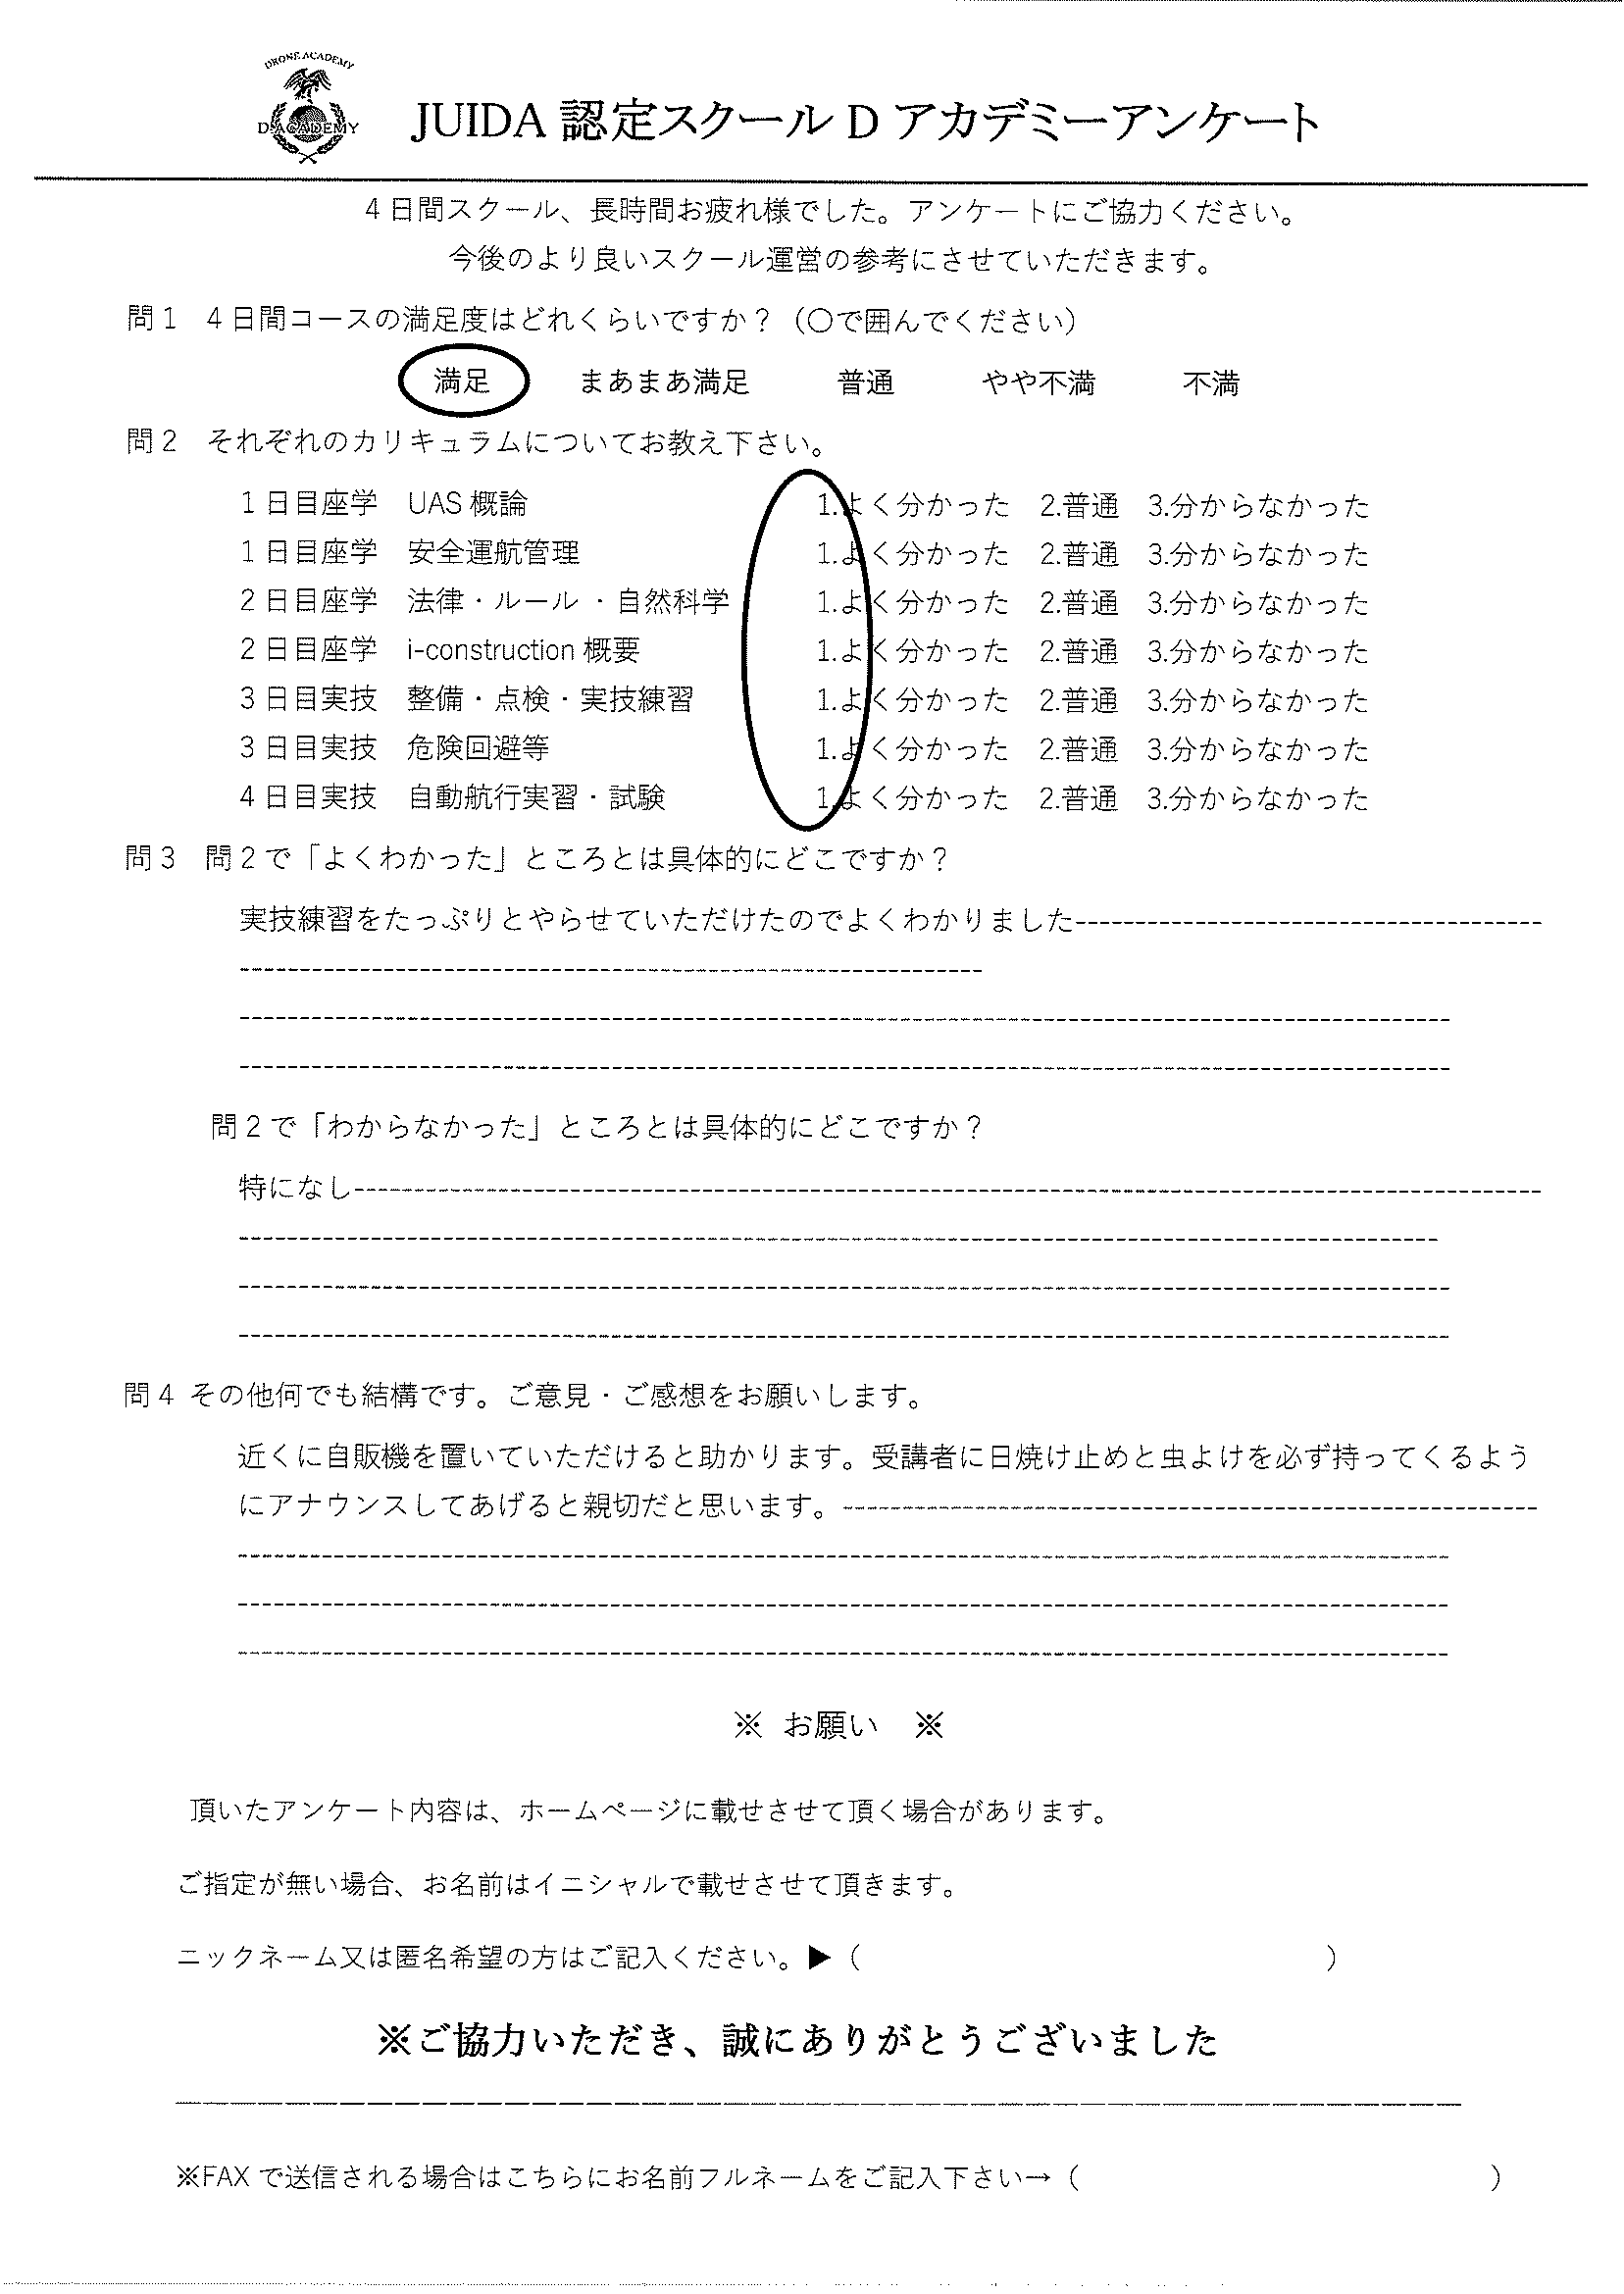 DRONE ACADEMY
D-ACADEMY
JUIDA 認定スクール D アカデミーアンケート
4 日間スクール、長時間お疲れ様でした。アンケートにご協力ください。
今後のより良いスクール運営の参考にさせていただきます。
問 1 4 日間コースの満足度はどれくらいですか？（〇で囲んでください）
満足 まあまあ満足 普通 やや不満 不満
問 2 それぞれのカリキュラムについてお教え下さい。
1 日目座学 UAS 概論 1.よく分かった 2.普通 3.分からなかった
1 日目座学 安全運航管理 1.よく分かった 2.普通 3.分からなかった
2 日目座学 法律・ルール ・自然科学 1.よく分かった 2.普通 3.分からなかった
2 日目座学 i-construction 概要 1.よく分かった 2.普通 3.分からなかった
3 日目実技 整備・点検・実技練習 1.よく分かった 2.普通 3.分からなかった
3 日目実技 危険回避等 1.よく分かった 2.普通 3.分からなかった
4 日目実技 自動航行実習・試験 1.よく分かった 2.普通 3.分からなかった
問 3 問 2 で「よくわかった」ところとは具体的にどこですか？
実技練習をたっぷりとやらせていただけたのでよくわかりました
問 2 で「わからなかった」ところとは具体的にどこですか？
特になし
問 4 その他何でも結構です。ご意見・ご感想をお願いします。
近くに自販機を置いていただけると助かります。受講者に日焼け止めと虫よけを必ず持ってくるよう
にアナウンスしてあげると親切だと思います。
※ お願い ※
頂いたアンケート内容は、ホームページに載せさせて頂く場合があります。
ご指定が無い場合、お名前はイニシャルで載せさせて頂きます。
ニックネーム又は匿名希望の方はご記入ください。▶（ ）
※ご協力いただき、誠にありがとうございました
※FAX で送信される場合はこちらにお名前フルネームをご記入下さい→（ ）